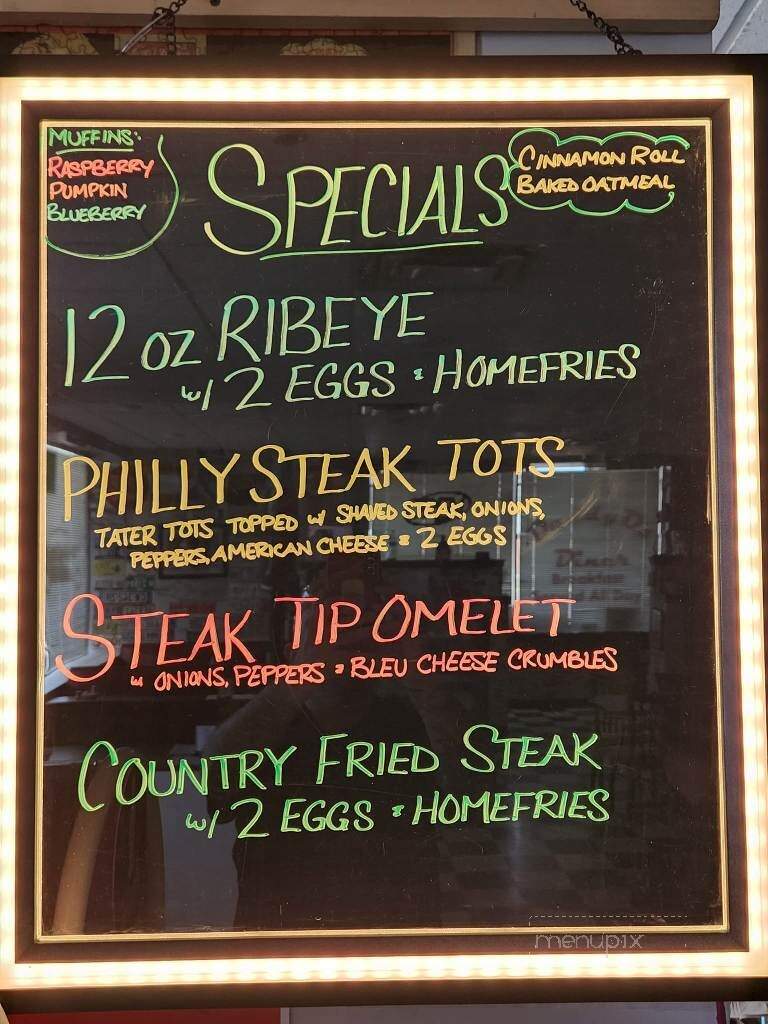 MUFFINS:
RASPBERRY
PUMPKIN
BLUEBERRY
SPECIALS
CINNAMON ROLL
BAKED OATMEAL
12 OZ RIBEYE
w/ 2 EGGS & HOMEFRIES
PHILLY STEAK TOTS
TATER TOTS TOPPED w/ SHAVED STEAK, ONIONS,
PEPPERS, AMERICAN CHEESE & 2 EGGS
STEAK TIP OMELET
w/ ONIONS, PEPPERS & BLEU CHEESE CRUMBLES
COUNTRY FRIED STEAK
w/ 2 EGGS & HOMEFRIES
menupix